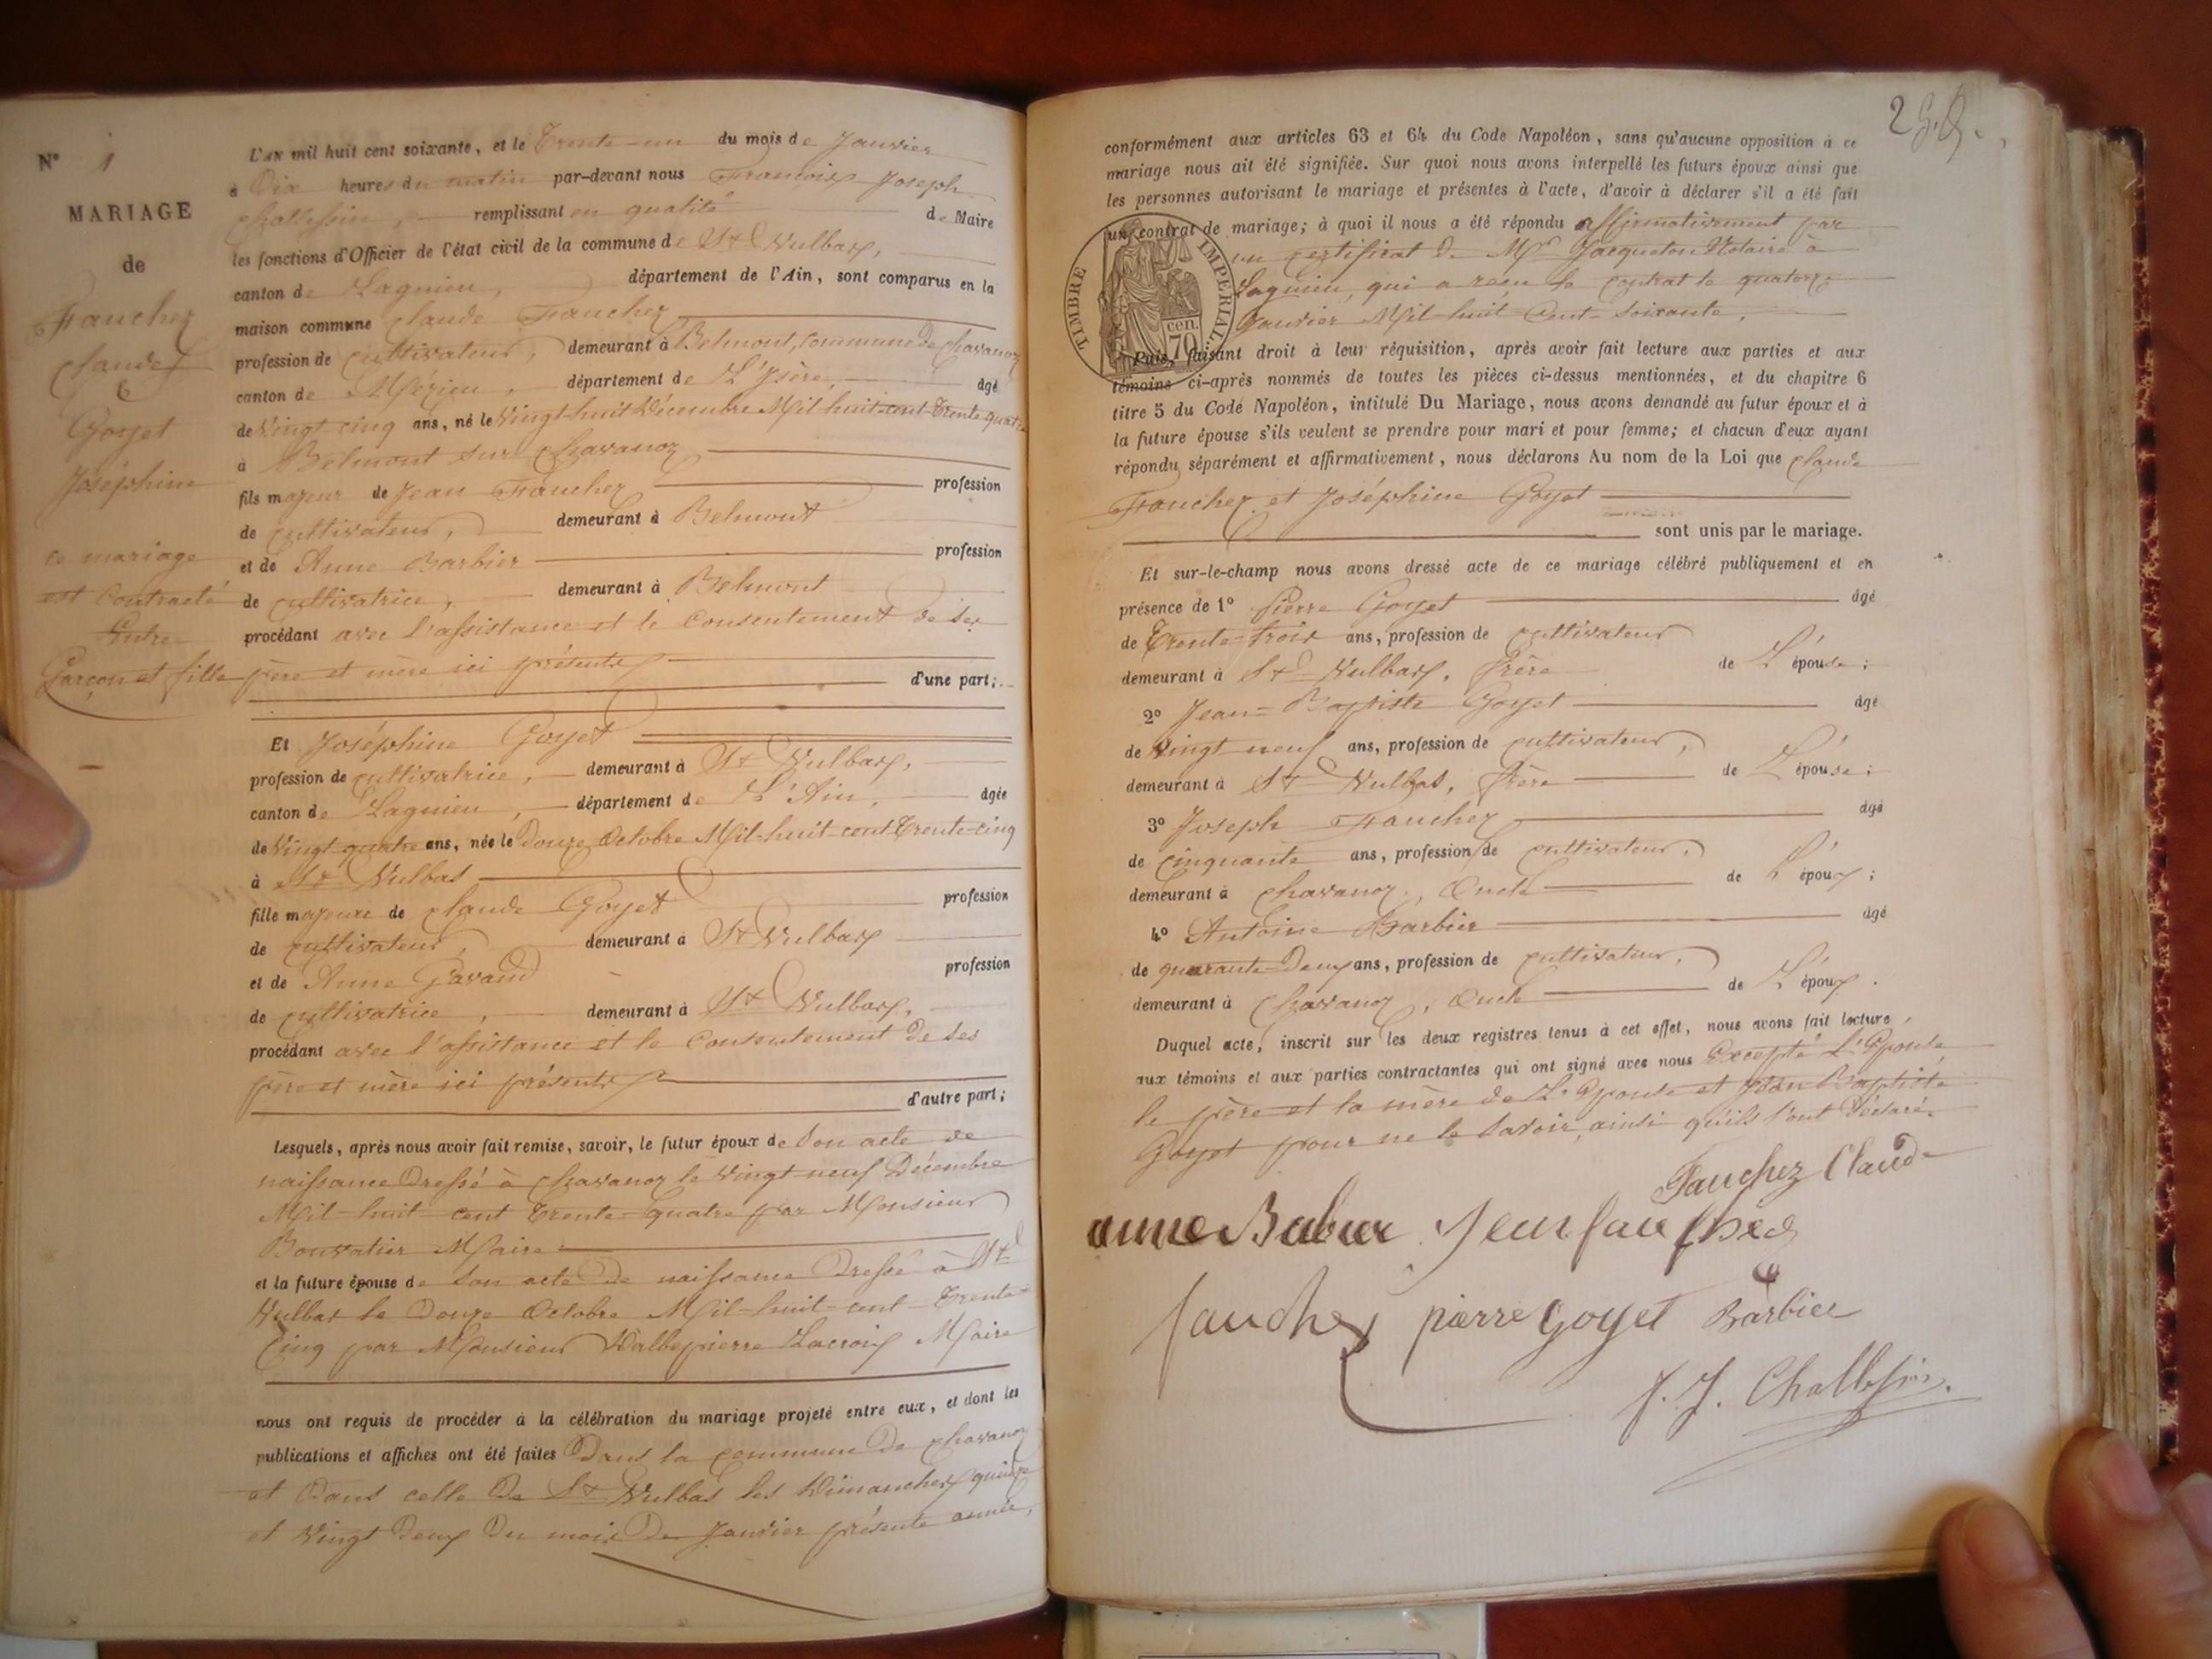 N° 1
MARIAGE
de
Fauchez
Claude
&
Goyet
Joséphine
ce mariage
est Contracté
Entre
Garçon et fille
L'AN mil huit cent soixante, et le Trente-un du mois de Janvier
à Dix heures du matin par-devant nous François Joseph
Challessin, remplissant en qualité de Maire
les fonctions d'Officier de l'état civil de la commune de St Vulbas,
canton de Lagnieu, département de l'Ain, sont comparus en la
maison commune Claude Fauchez
profession de cultivateur, demeurant à Belmont, commune de Chavanoz
canton de Meyzieu, département de L'Isère, âgé
de Vingt cinq ans, né le Vingt-huit Décembre Mil huit-cent-Trente quatre
à Belmont sur Chavanoz
fils majeur de Jean Fauchez profession
de cultivateur, demeurant à Belmont
et de Anne Barbier profession
de cultivatrice, demeurant à Belmont
procédant avec l'assistance et le Consentement de ses
père et mère ici présents
d'une part;
Et Joséphine Goyet
profession de cultivatrice, demeurant à St Vulbas,
canton de Lagnieu, département de L'Ain, âgée
de Vingt-quatre ans, née le Douze Octobre Mil-huit-cent Trente-cinq
à St Vulbas
fille majeure de Claude Goyet profession
de cultivateur, demeurant à St Vulbas
et de Anne Gavand profession
de cultivatrice, demeurant à St Vulbas,
procédant avec l'assistance et le Consentement de ses
père et mère ici présents
d'autre part;
Lesquels, après nous avoir fait remise, savoir, le futur époux de Son acte de
naissance Dressé à Chavanoz le Vingt-neuf Décembre
Mil-huit-cent Trente-quatre par Monsieur
Bouvatier Maire
et la future épouse de Son acte De naissance Dressé à St
Vulbas le Douze Octobre Mil-huit-cent-Trente-
Cinq par Monsieur Lacroix Maire
nous ont requis de procéder à la célébration du mariage projeté entre eux, et dont les
publications et affiches ont été faites Dans la commune De Chavanoz
et Dans celle De St Vulbas les Dimanches quinze
et Vingt Deux Du mois De Janvier présente année,
259.
conformément aux articles 63 et 64 du Code Napoléon, sans qu'aucune opposition à ce
mariage nous ait été signifiée. Sur quoi nous avons interpellé les futurs époux ainsi que
les personnes autorisant le mariage et présentes à l'acte, d'avoir à déclarer s'il a été fait
un contrat de mariage; à quoi il nous a été répondu affirmativement par
un certificat de Mr Jacqueton Notaire à
Lagnieu, qui a reçu le contrat le quatorze
Janvier Mil-huit Cent-Soixante,
TIMBRE IMPERIAL
70 cen.
Puis, faisant droit à leur réquisition, après avoir fait lecture aux parties et aux
témoins ci-après nommés de toutes les pièces ci-dessus mentionnées, et du chapitre 6
titre 5 du Code Napoléon, intitulé Du Mariage, nous avons demandé au futur époux et à
la future épouse s'ils veulent se prendre pour mari et pour femme; et chacun d'eux ayant
répondu séparément et affirmativement, nous déclarons Au nom de la Loi que Claude
Fauchez et Joséphine Goyet
sont unis par le mariage.
Et sur-le-champ nous avons dressé acte de ce mariage célébré publiquement et en
présence de 1° Pierre Goyet âgé
de Trente-trois ans, profession de cultivateur
demeurant à St Vulbas, frère de L'épouse;
2° Jean-Baptiste Goyet âgé
de Vingt neuf ans, profession de cultivateur,
demeurant à St Vulbas, frère de L'épouse;
3° Joseph Fauchez âgé
de Cinquante ans, profession de cultivateur,
demeurant à Chavanoz, Oncle de L'époux;
4° Antoine Barbier âgé
de quarante-Deux ans, profession de cultivateur,
demeurant à Chavanoz, Oncle de L'époux.
Duquel acte, inscrit sur les deux registres tenus à cet effet, nous avons fait lecture
aux témoins et aux parties contractantes qui ont signé avec nous Excepté L'Epouse,
le père et la mère de L'Epouse et Jean-Baptiste
Goyet pour ne le Savoir, ainsi qu'ils l'ont Déclaré.
Fauchez Claude
anne Babier Jean fauchez
fauchez pierre Goyet Barbier
f. J. Challessin.